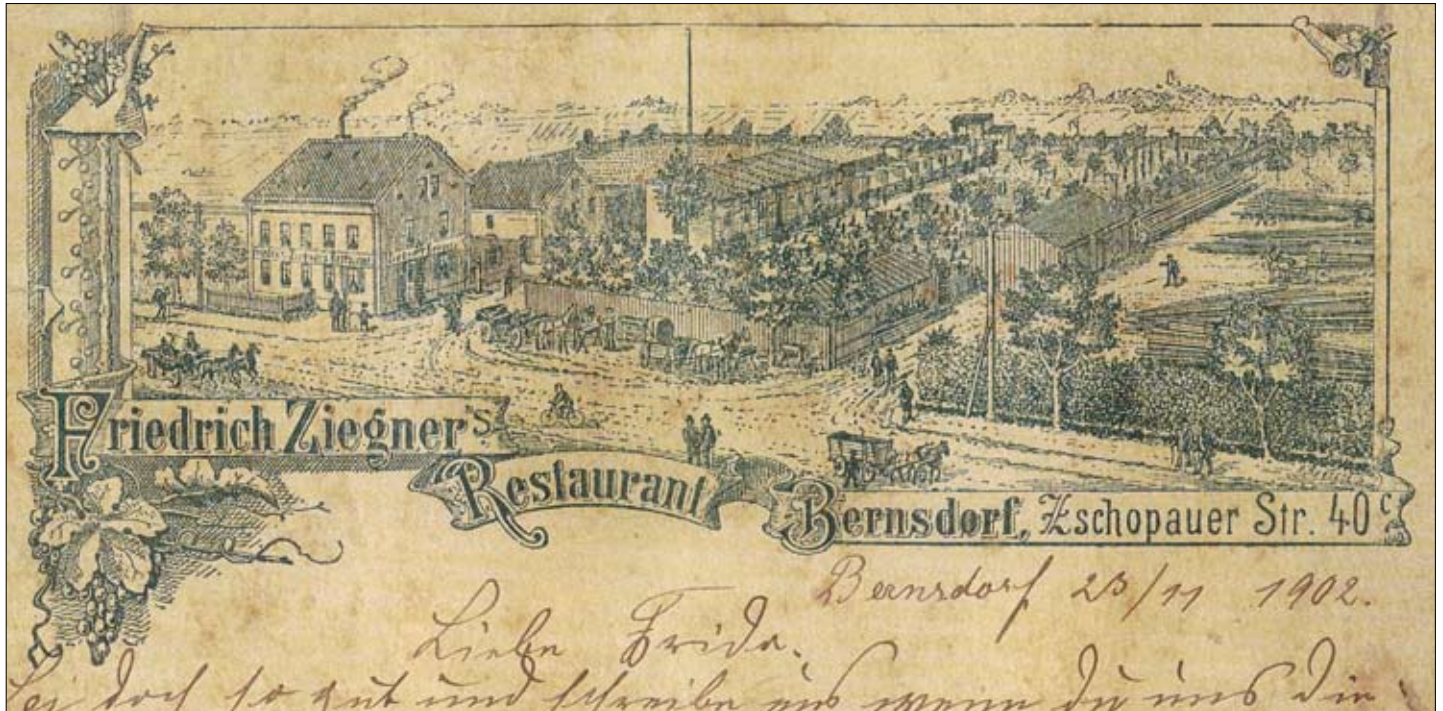 Friedrich Ziegner's
Restaurant
Bernsdorf, Zschopauer Str. 40 c
Bernsdorf 23/11 1902.
Liebe Frida.
Sei doch so gut und schreibe uns wenn du uns die